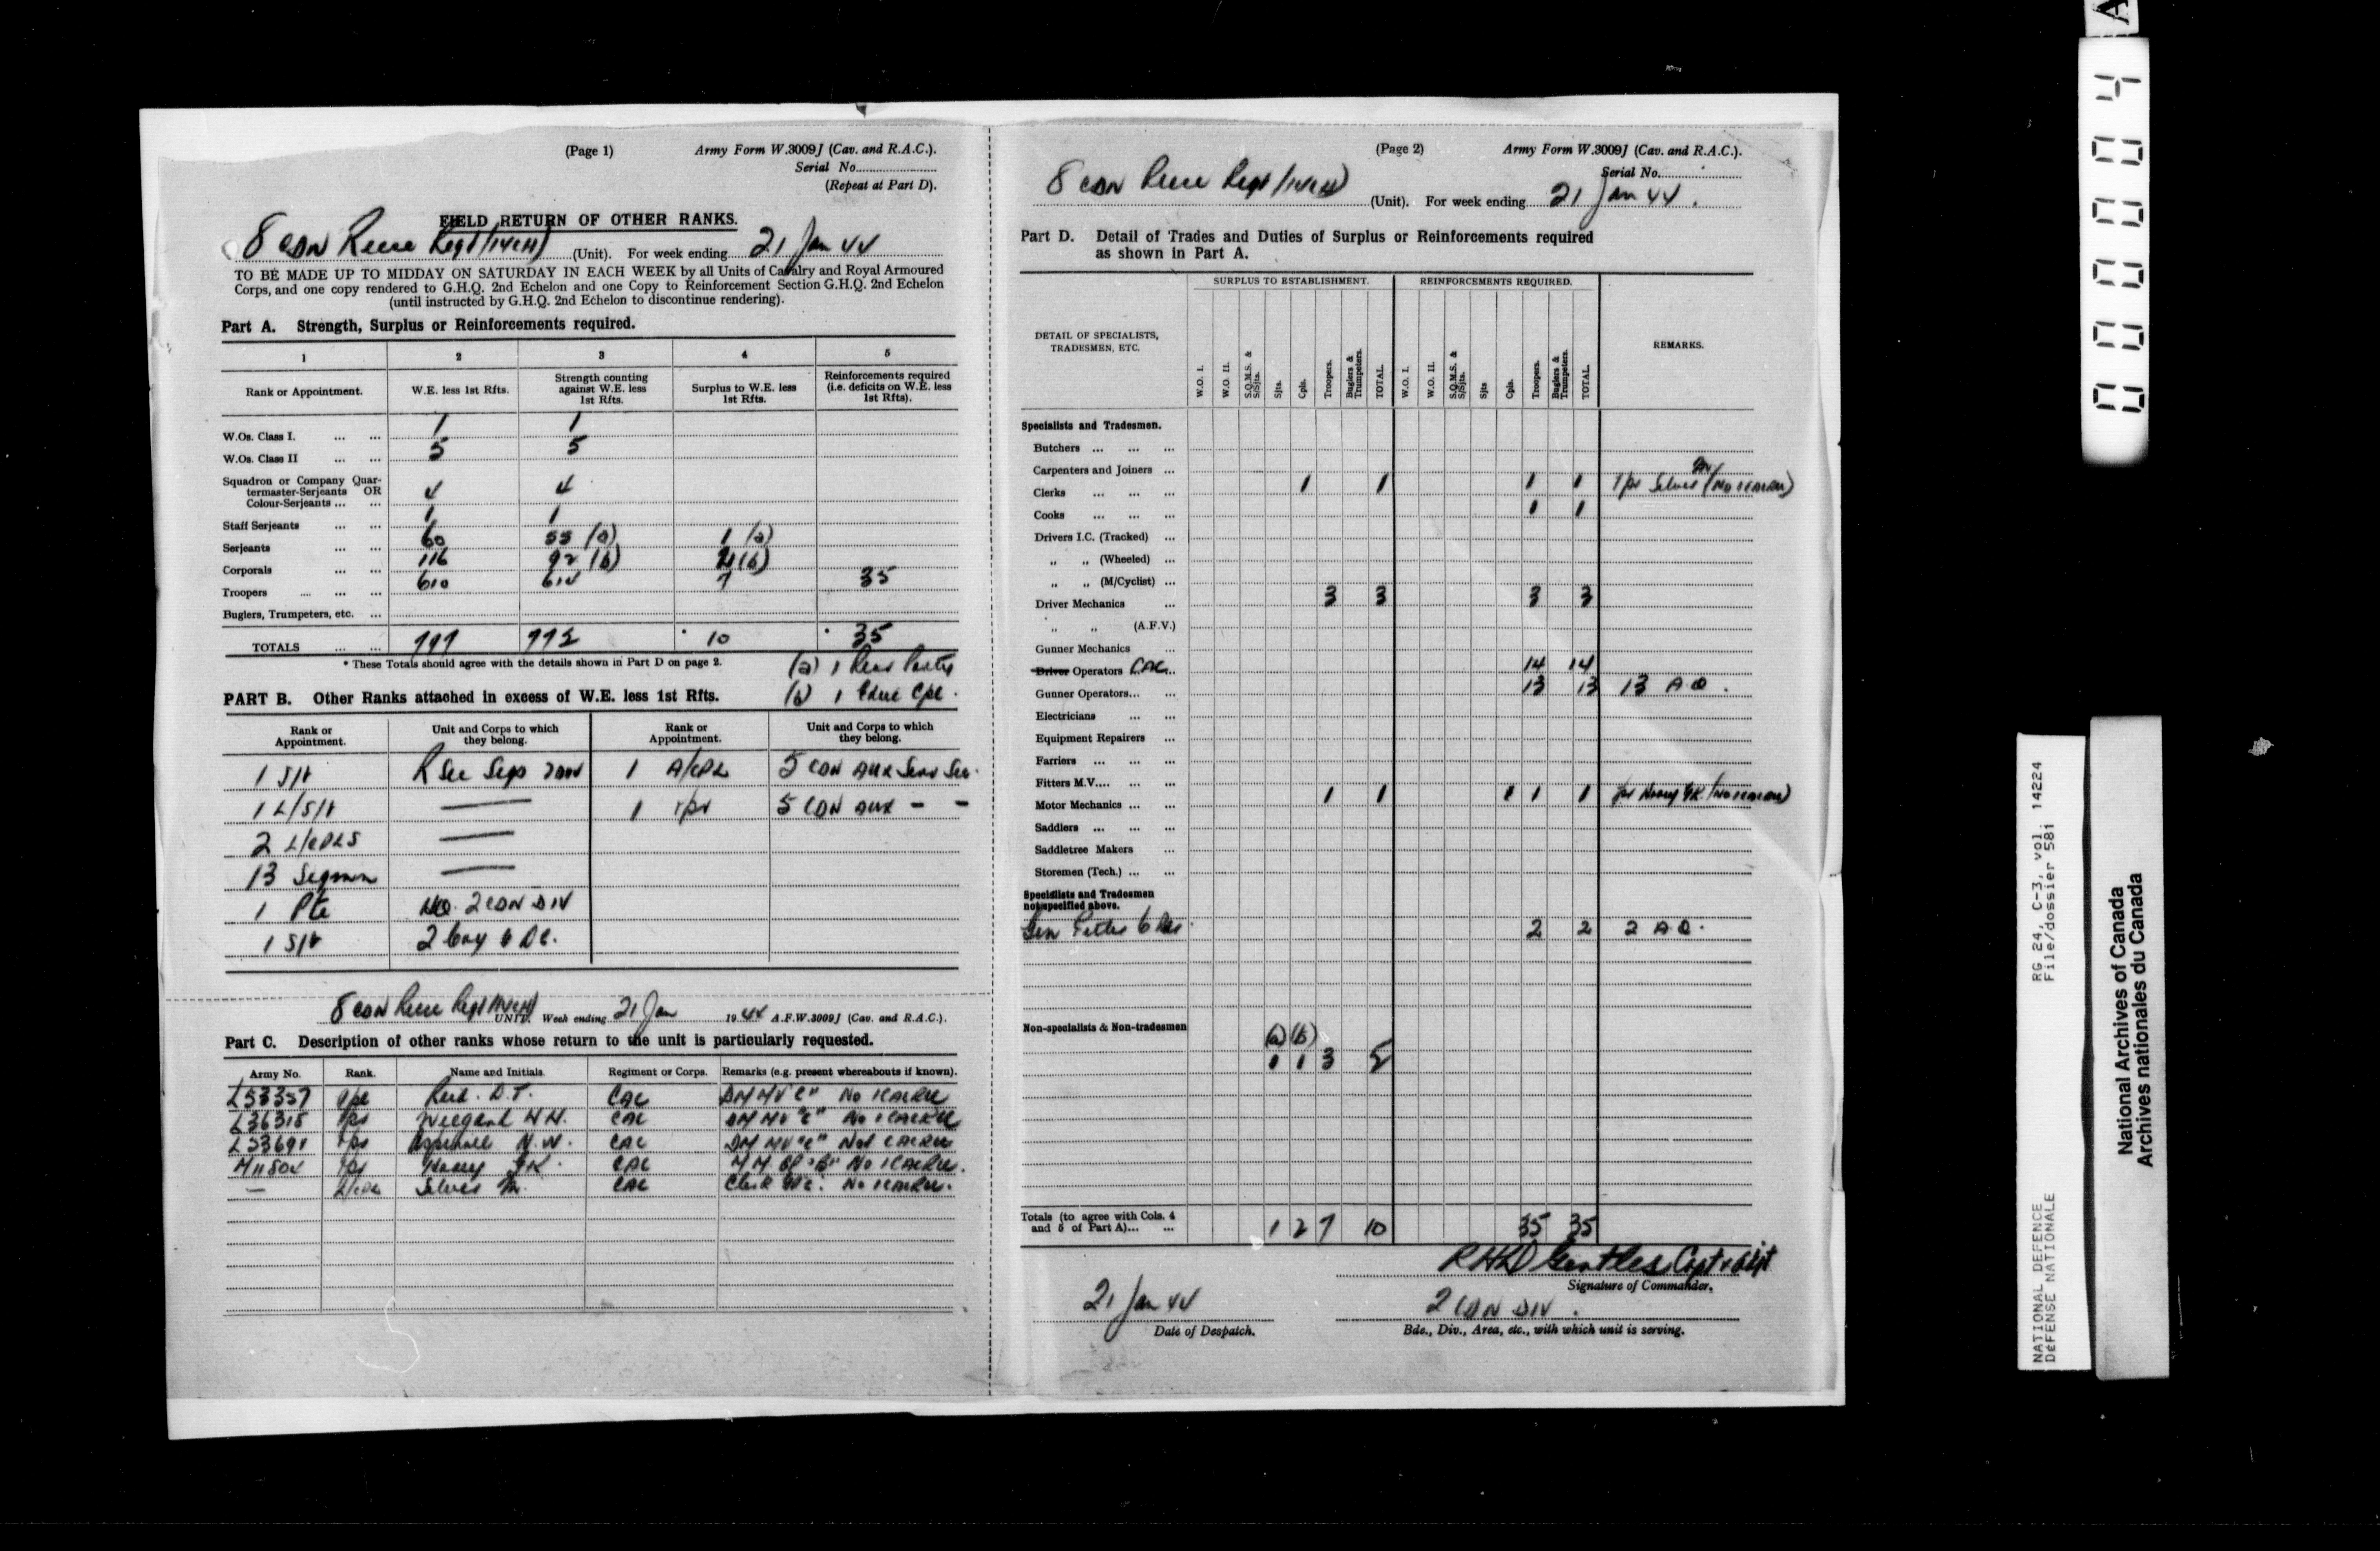 (Page 1) Army Form W.3009J (Cav. and R.A.C.).
Serial No.
(Repeat at Part D).
FIELD RETURN OF OTHER RANKS.
8 CDN Recce Regt (14CH) (Unit). For week ending 21 Jan 44
TO BE MADE UP TO MIDDAY ON SATURDAY IN EACH WEEK by all Units of Cavalry and Royal Armoured
Corps, and one copy rendered to G.H.Q. 2nd Echelon and one Copy to Reinforcement Section G.H.Q. 2nd Echelon
(until instructed by G.H.Q. 2nd Echelon to discontinue rendering).
Part A. Strength, Surplus or Reinforcements required.
1 2 3 4 5
Rank or Appointment. W.E. less 1st Rfts. Strength counting against W.E. less 1st Rfts. Surplus to W.E. less 1st Rfts. Reinforcements required (i.e. deficits on W.E. less 1st Rfts).
W.Os. Class I. ... ... 1 1
W.Os. Class II ... ... 5 5
Squadron or Company Quar-
termaster-Serjeants OR 4 4
Colour-Serjeants ... ...
Staff Serjeants ... ... 1 1
Serjeants ... ... 60 55 (a) 1 (a)
Corporals ... ... 116 92 (b) 2 (b)
Troopers .... ... ... 610 614 7 35
Buglers, Trumpeters, etc. ...
TOTALS ... ... 797 772 * 10 * 35
* These Totals should agree with the details shown in Part D on page 2.
(a) 1 Rear Party
(b) 1 Educ Cpl.
PART B. Other Ranks attached in excess of W.E. less 1st Rfts.
Rank or Appointment. Unit and Corps to which they belong. Rank or Appointment. Unit and Corps to which they belong.
1 Sjt 1 A/CPL 5 CDN AUX Serv Sec.
1 L/Sjt — 1 Tpr 5 CDN AUX - -
2 L/CPLS —
13 Sigmn —
1 Pte HQ. 2 CDN DIV
1 Sjt 2
8 CDN Recce Regt (14CH) UNIT. Week ending 21 Jan 1944 A.F.W.3009J (Cav. and R.A.C.).
Part C. Description of other ranks whose return to the unit is particularly requested.
Army No. Rank. Name and Initials. Regiment or Corps. Remarks (e.g. present whereabouts if known).
L53357 Reid. D.T. CAC DM MV "C" No 1 CACRU
L36315 Tpr Weegand CAC DM MV "C" No 1 CACRU
L53691 Tpr Aspinall N.W. CAC DM MV "C" No 1 CACRU
Tpr CAC M.M. "B" No 1 CACRU.
— L/CPL Silver M. CAC Clerk No 1 CACRU.
(Page 2) Army Form W.3009J (Cav. and R.A.C.).
Serial No.
8 CDN Recce Regt (14CH) (Unit). For week ending 21 Jan 44.
Part D. Detail of Trades and Duties of Surplus or Reinforcements required
as shown in Part A.
SURPLUS TO ESTABLISHMENT. REINFORCEMENTS REQUIRED.
DETAIL OF SPECIALISTS, TRADESMEN, ETC. REMARKS.
W.O. I. W.O. II. S.Q.M.S. & S/Sjts. Sjts. Cpls. Troopers. Buglers & Trumpeters. TOTAL. W.O. I. W.O. II. S.Q.M.S. & S/Sjts. Sjts Cpls. Troopers. Buglers & Trumpeters. TOTAL.
Specialists and Tradesmen.
Butchers ... ... ...
Carpenters and Joiners ...
Clerks ... ... ... 1 1 1 1 Tpr Silver M (No 1 CACRU)
Cooks ... ... ... 1 1
Drivers I.C. (Tracked) ...
" " (Wheeled) ...
" " (M/Cyclist) ...
Driver Mechanics ... 3 3 3 3
" " (A.F.V.)
Gunner Mechanics ...
Driver Operators CAC 14 14
Gunner Operators... ... 13 13 13 A.O.
Electricians ... ...
Equipment Repairers ...
Farriers ... ... ...
Fitters M.V.... ... ...
Motor Mechanics ... ... 1 1 1 1 1 (No 1 CACRU)
Saddlers ... ... ...
Saddletree Makers ...
Storemen (Tech.) ... ...
Specialists and Tradesmen
not specified above.
2 2 2 A.O.
Non-specialists & Non-tradesmen (a) (b)
1 1 3 5
Totals (to agree with Cols. 4
and 5 of Part A)... ... 1 2 7 10 35 35
RHD Gentles Capt & Adjt
Signature of Commander.
21 Jan 44 2 CDN DIV.
Date of Despatch. Bde., Div., Area, etc., with which unit is serving.
A
00004
RG 24, C-3, vol. 14224
File/dossier 581
NATIONAL DEFENCE
DÉFENSE NATIONALE
National Archives of Canada
Archives nationales du Canada